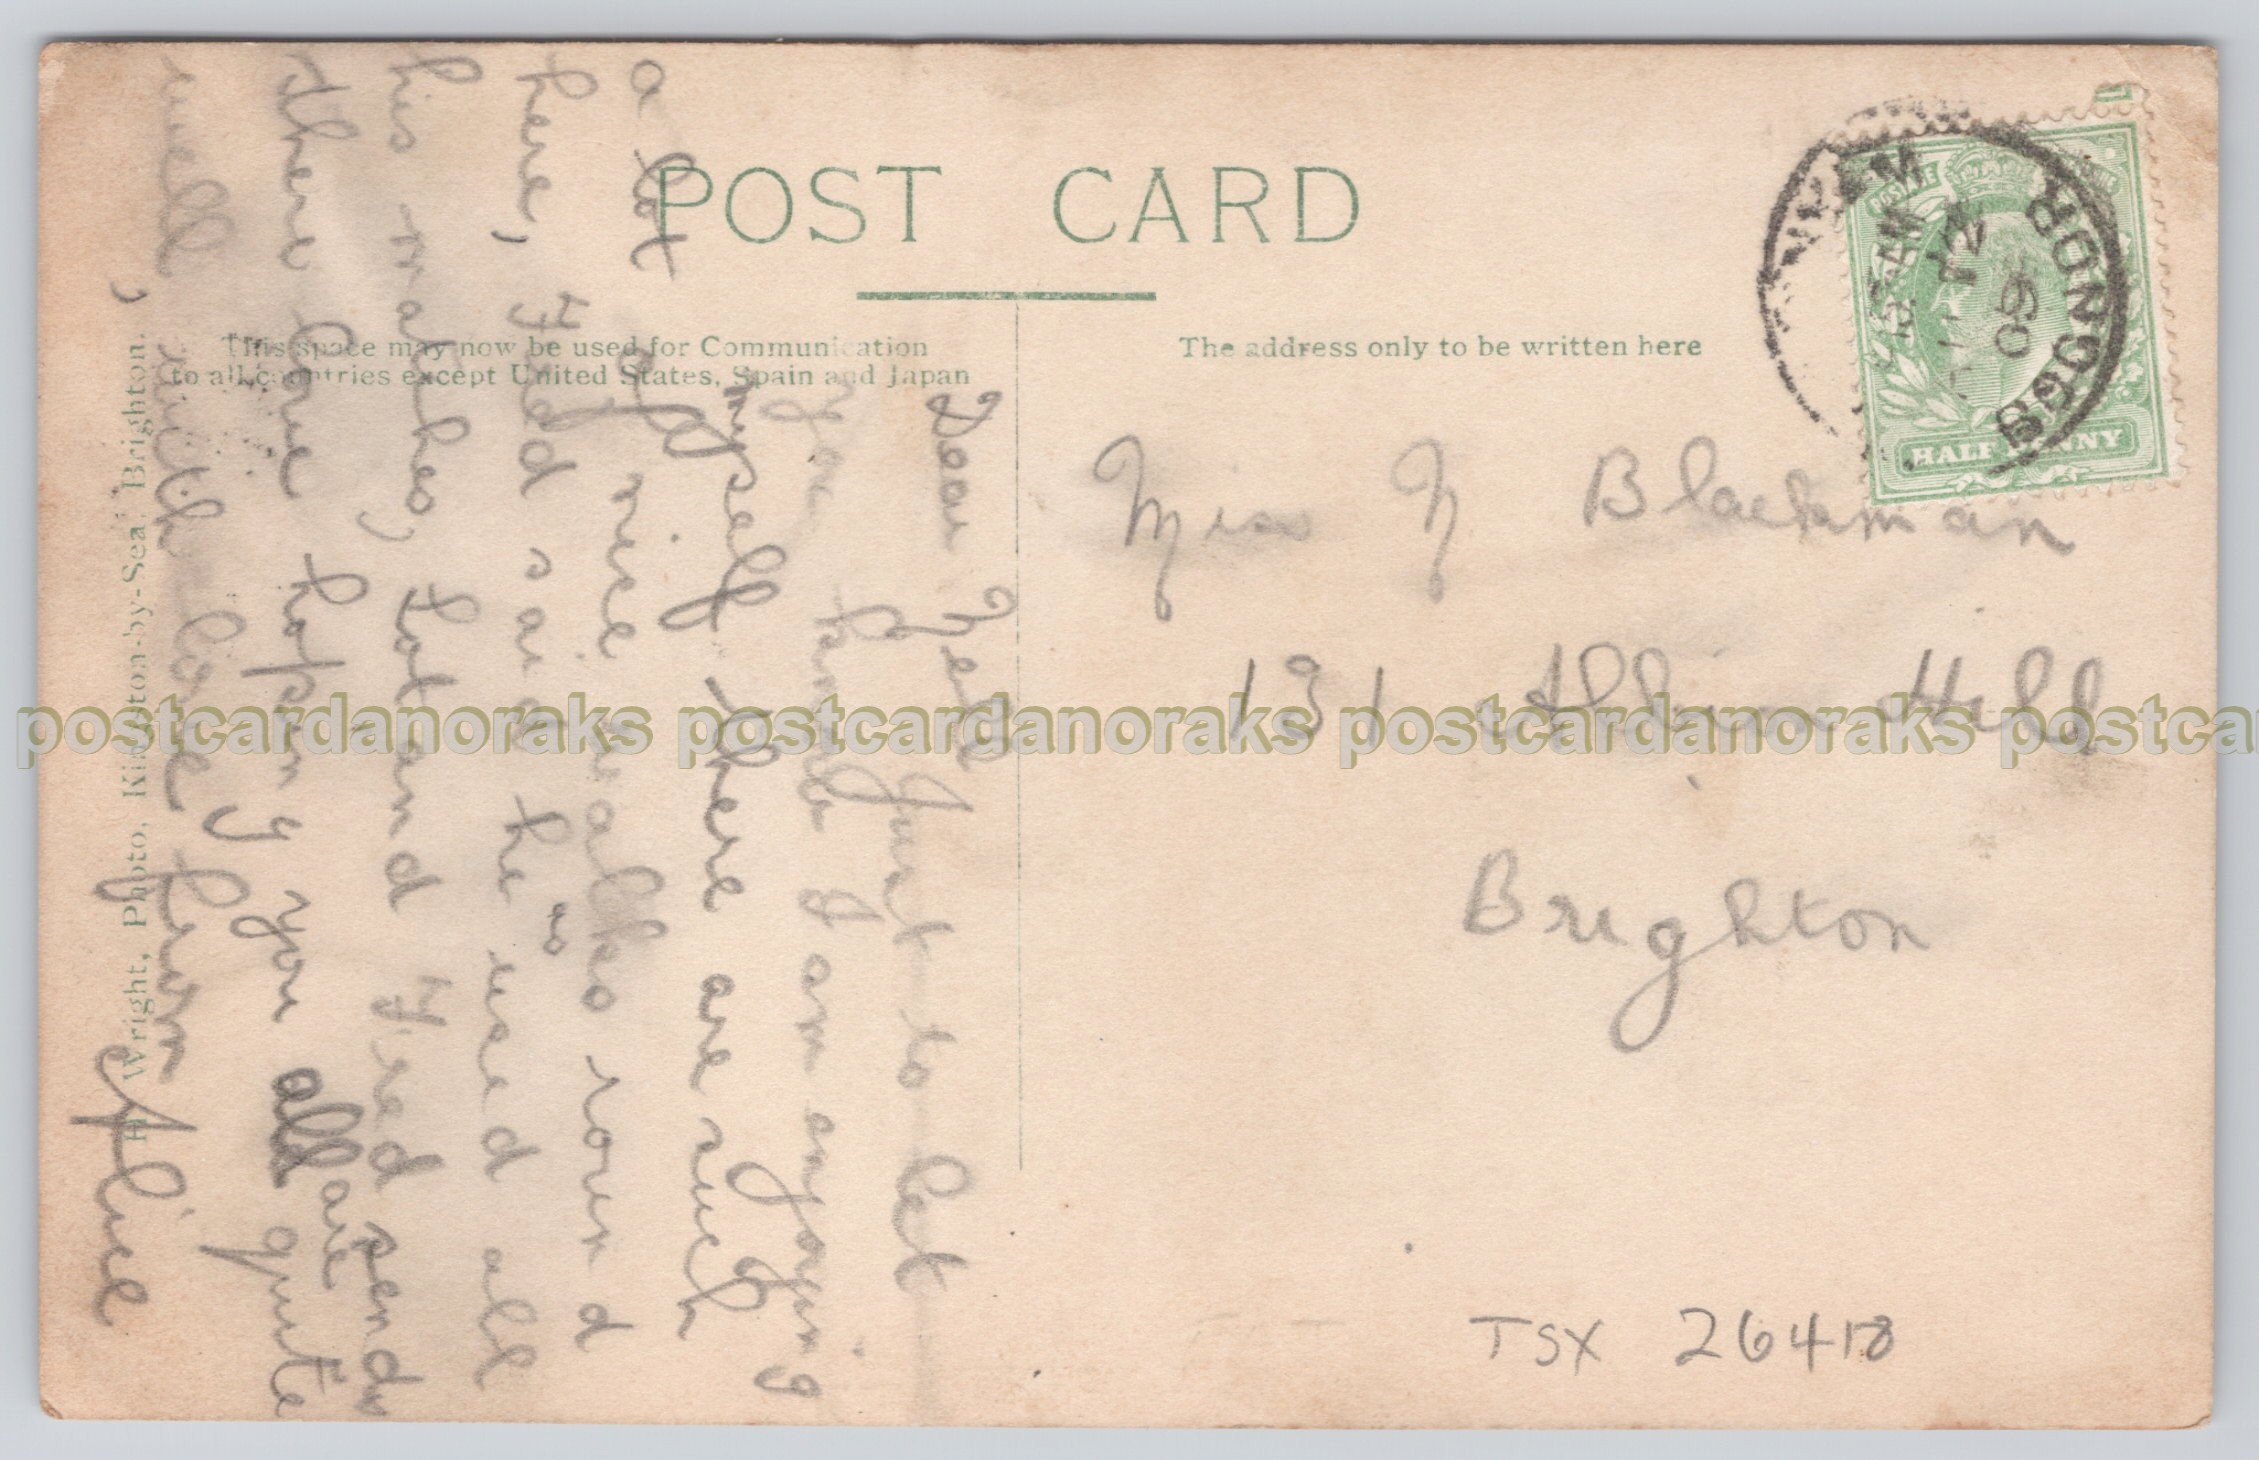 POST CARD
This space may now be used for Communication
to all countries except United States, Spain and Japan
The address only to be written here
H Wright, Photo, Kingston-by-Sea, Brighton.
BOGNOR
JY 12
09
HALF PENNY
Miss N Blackman
131 Albion Hill
Brighton
Dear Nell Just to let
you know I am enjoying
myself there are such
a lot of nice walks round
here, Fred said he as used all
his matches, Lot and Fred sends
there love hoping you all are quite
well, with love from
Alice
TSX 26418
postcardanoraks postcardanoraks postcardanoraks postca